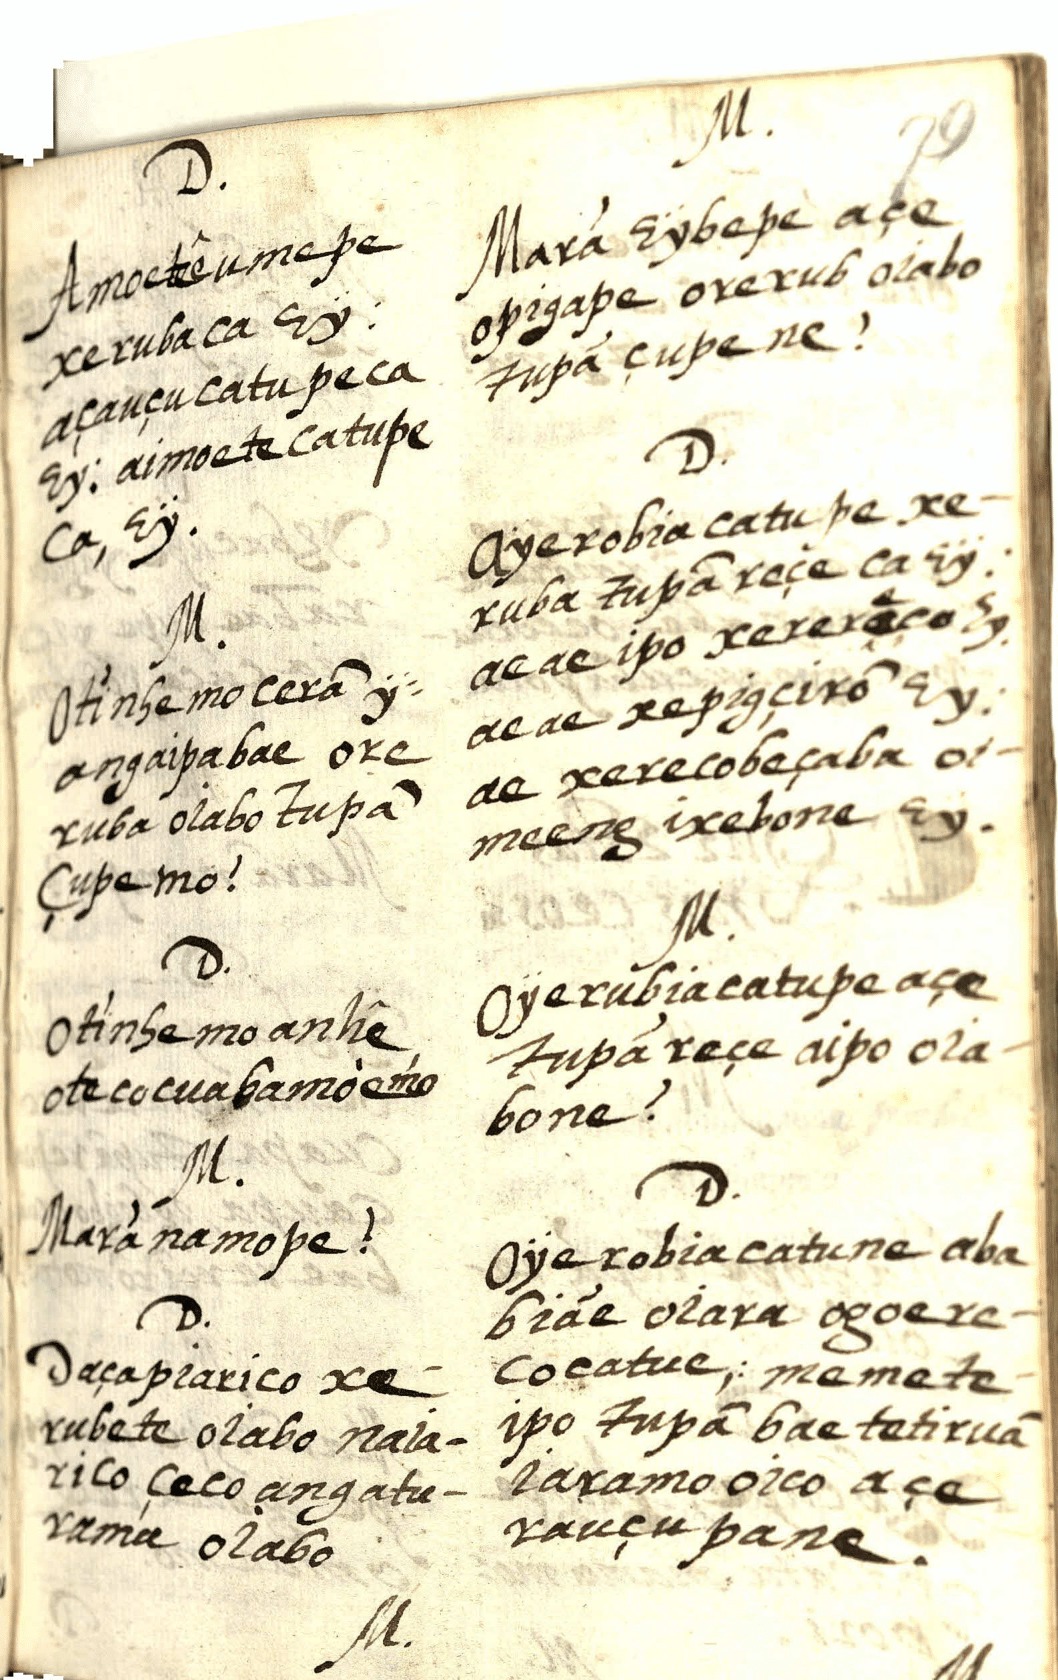 D.
Amoetêumepe
xerubaca Eÿ:
açauçucatupeca
Ey: aimoetecatupe
ca, Eÿ.
M.
Oti'nhemocerã ÿ-
angaipabae ore
ruba oiabo Tupã
Çupemo?
D.
Oti'nhemo anhê
otecocuabamoemo
M.
Marã namope?
D.
Daçapiarico xe-
rubete oiabo naia-
rico çeco angatu-
rama oiabo
M.
79
M.
Marã Eybepe açe
opigape orerub oiabo
tupã çupene?
D.
Ayerobia catupe xe-
ruba tupã reçe ca Eÿ:
aeae ipo xererêço Ey.
aeae xepigçirõ Ey:
ae xerecobeçaba oi-
meeng ixebone Ey.
M.
Oÿerubiacatupe açe
tupã reçe aipo oia-
bone?
D.
Oÿerobiacatune aba
biãe oiara ogoere-
cocatue; memete-
ipo tupã bae tetiruã
iaramo oico açe
rauçupane.
M.